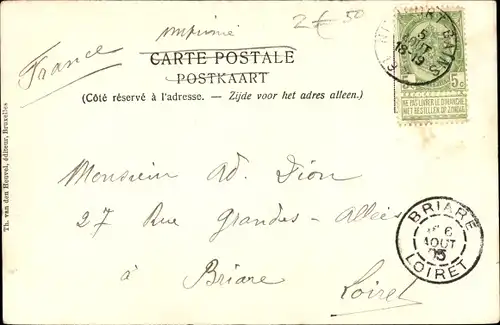 imprimé
2€50
France
CARTE POSTALE
POSTKAART
(Côté réservé à l'adresse. – Zijde voor het adres alleen.)
5
AOUT
5c 5c
NE PAS LIVRER LE DIMANCHE
NIET BESTELLEN OP ZONDAG
Monsieur Ad. Dion
27 Rue Grandes-Allées
à Briare
Loiret
BRIARE
6
AOUT
05
LOIRET
Th. van den Heuvel, éditeur, Bruxelles